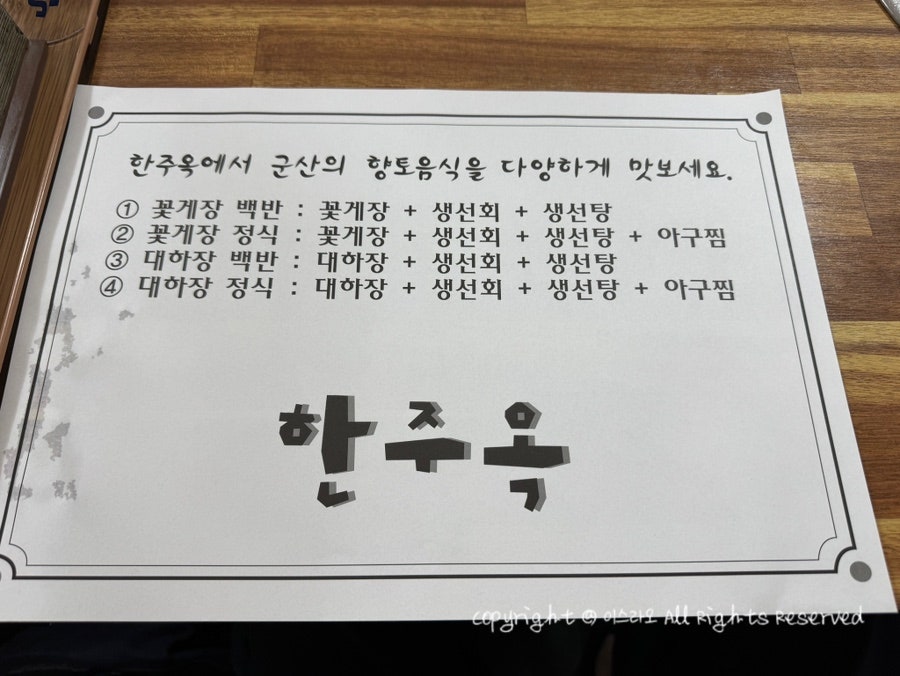 한주옥에서 군산의 향토음식을 다양하게 맛보세요.
① 꽃게장 백반 : 꽃게장 + 생선회 + 생선탕
② 꽃게장 정식 : 꽃게장 + 생선회 + 생선탕 + 아구찜
③ 대하장 백반 : 대하장 + 생선회 + 생선탕
④ 대하장 정식 : 대하장 + 생선회 + 생선탕 + 아구찜
한주옥
copyright © 이스라오 All Rights Reserved